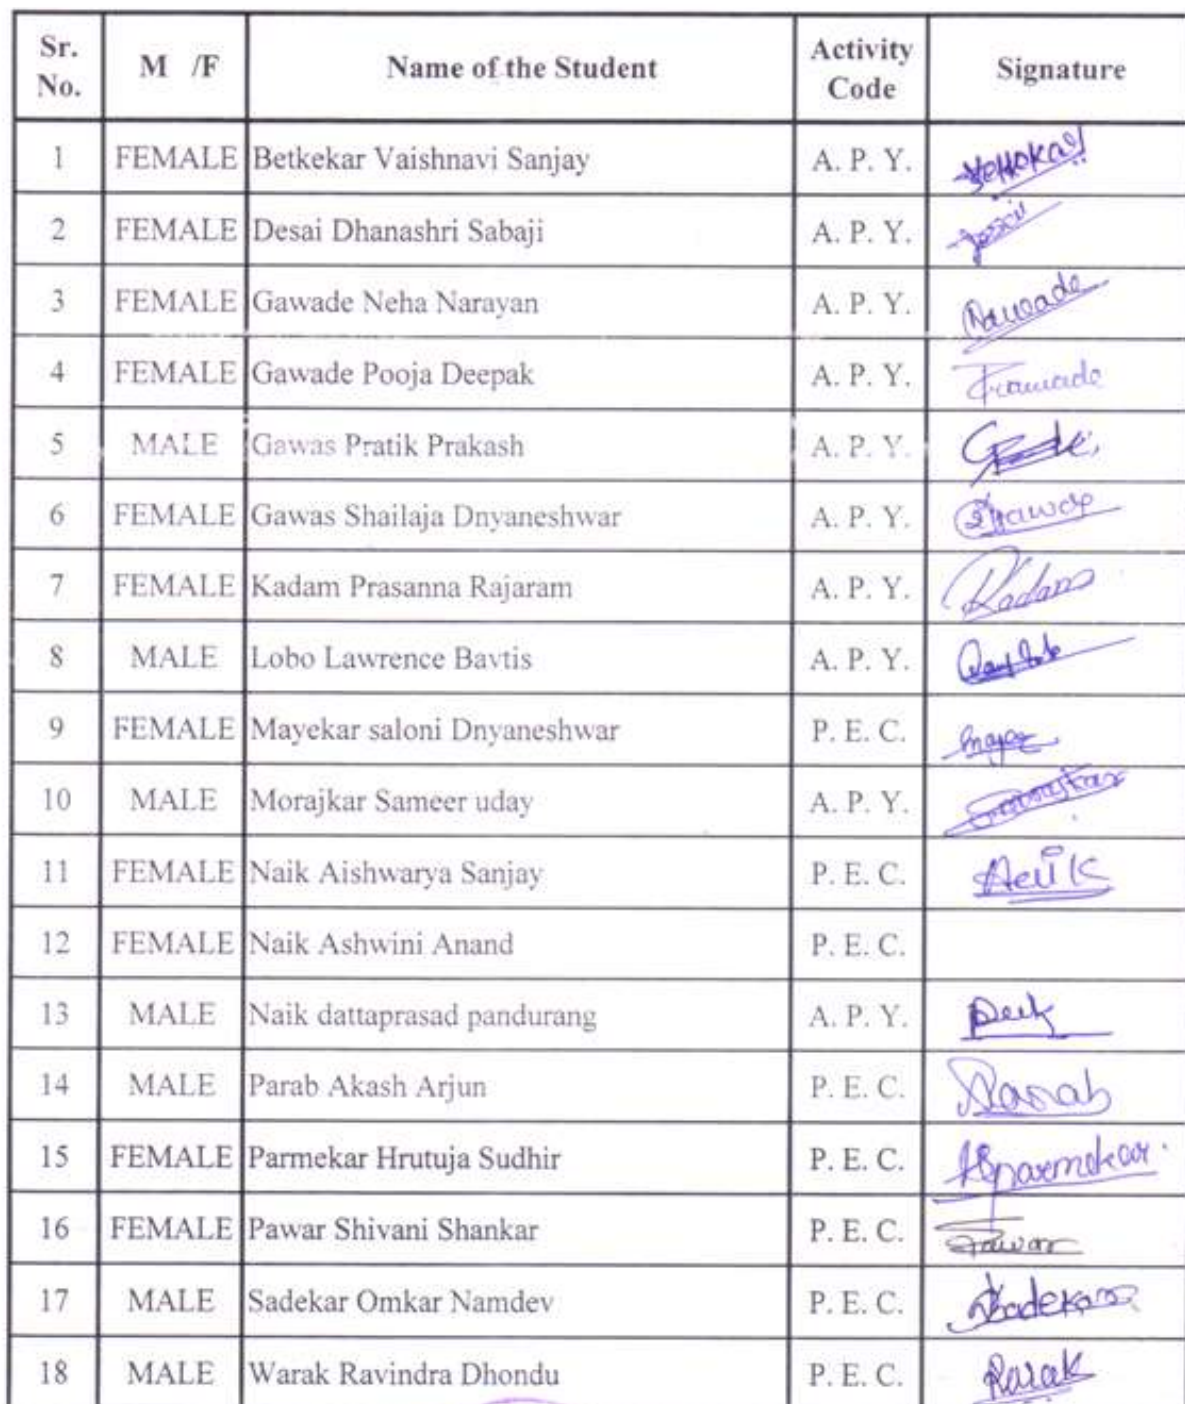 Sr. No. M /F Name of the Student Activity Code Signature
1 FEMALE Betkekar Vaishnavi Sanjay A. P. Y.
2 FEMALE Desai Dhanashri Sabaji A. P. Y.
3 FEMALE Gawade Neha Narayan A. P. Y.
4 FEMALE Gawade Pooja Deepak A. P. Y.
5 MALE Gawas Pratik Prakash A. P. Y.
6 FEMALE Gawas Shailaja Dnyaneshwar A. P. Y.
7 FEMALE Kadam Prasanna Rajaram A. P. Y. Kadam
8 MALE Lobo Lawrence Bavtis A. P. Y.
9 FEMALE Mayekar saloni Dnyaneshwar P. E. C.
10 MALE Morajkar Sameer uday A. P. Y.
11 FEMALE Naik Aishwarya Sanjay P. E. C.
12 FEMALE Naik Ashwini Anand P. E. C.
13 MALE Naik dattaprasad pandurang A. P. Y.
14 MALE Parab Akash Arjun P. E. C. Parab
15 FEMALE Parmekar Hrutuja Sudhir P. E. C. HSparmekar
16 FEMALE Pawar Shivani Shankar P. E. C. Pawar
17 MALE Sadekar Omkar Namdev P. E. C.
18 MALE Warak Ravindra Dhondu P. E. C.